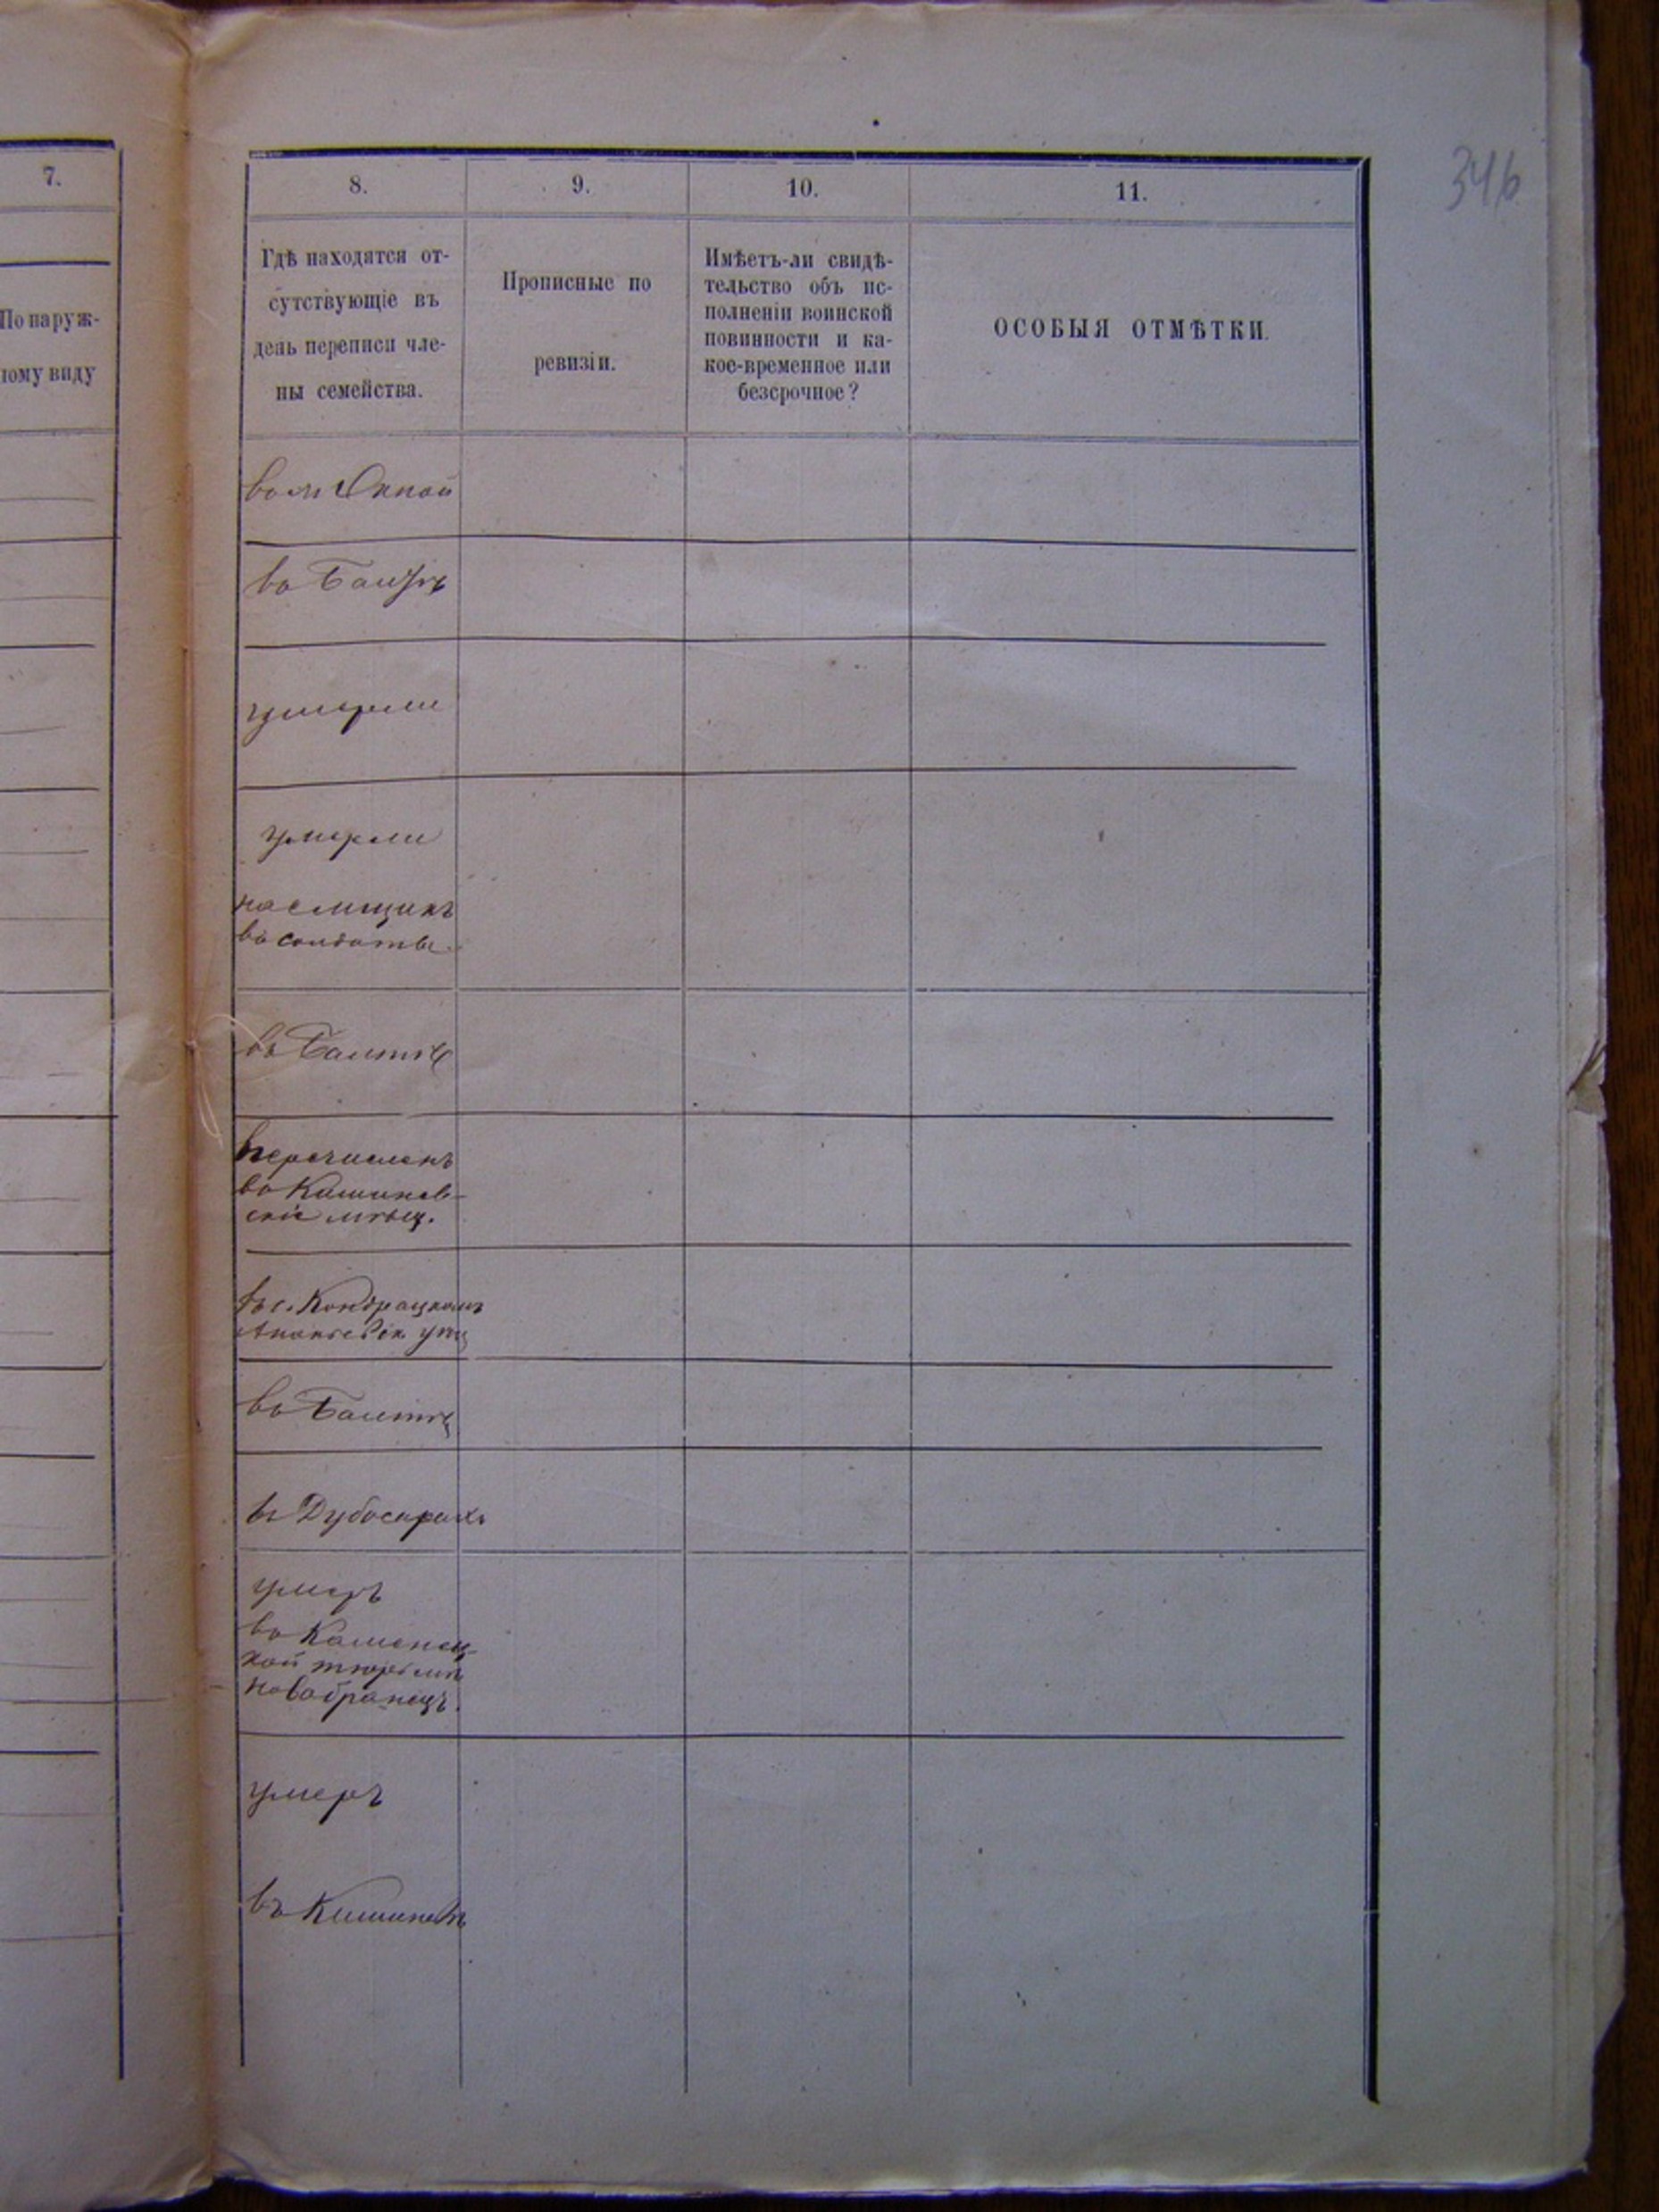 346
7.
По наруж-
ному виду
8.
9.
10.
11.
Гдѣ находятся от-
сутствующіе въ
день переписи чле-
ны семейства.
Прописные по
ревизіи.
Имѣетъ-ли свидѣ-
тельство объ ис-
полненіи воинской
повинности и ка-
кое-временное или
безсрочное?
ОСОБЫЯ ОТМѢТКИ.
въ м Окной
въ Балтѣ
умерли
умерли
наемщикъ
въ солдаты
въ Балтѣ
перечисленъ
въ Кишинев-
скіе мѣщ.
въ с. Кондрацкомъ
Ананьевск
въ Балтѣ
въ Дубосарахъ
умеръ
въ Каменец-
кой тюрьмѣ
новобранецъ.
умеръ
въ Кишиневѣ